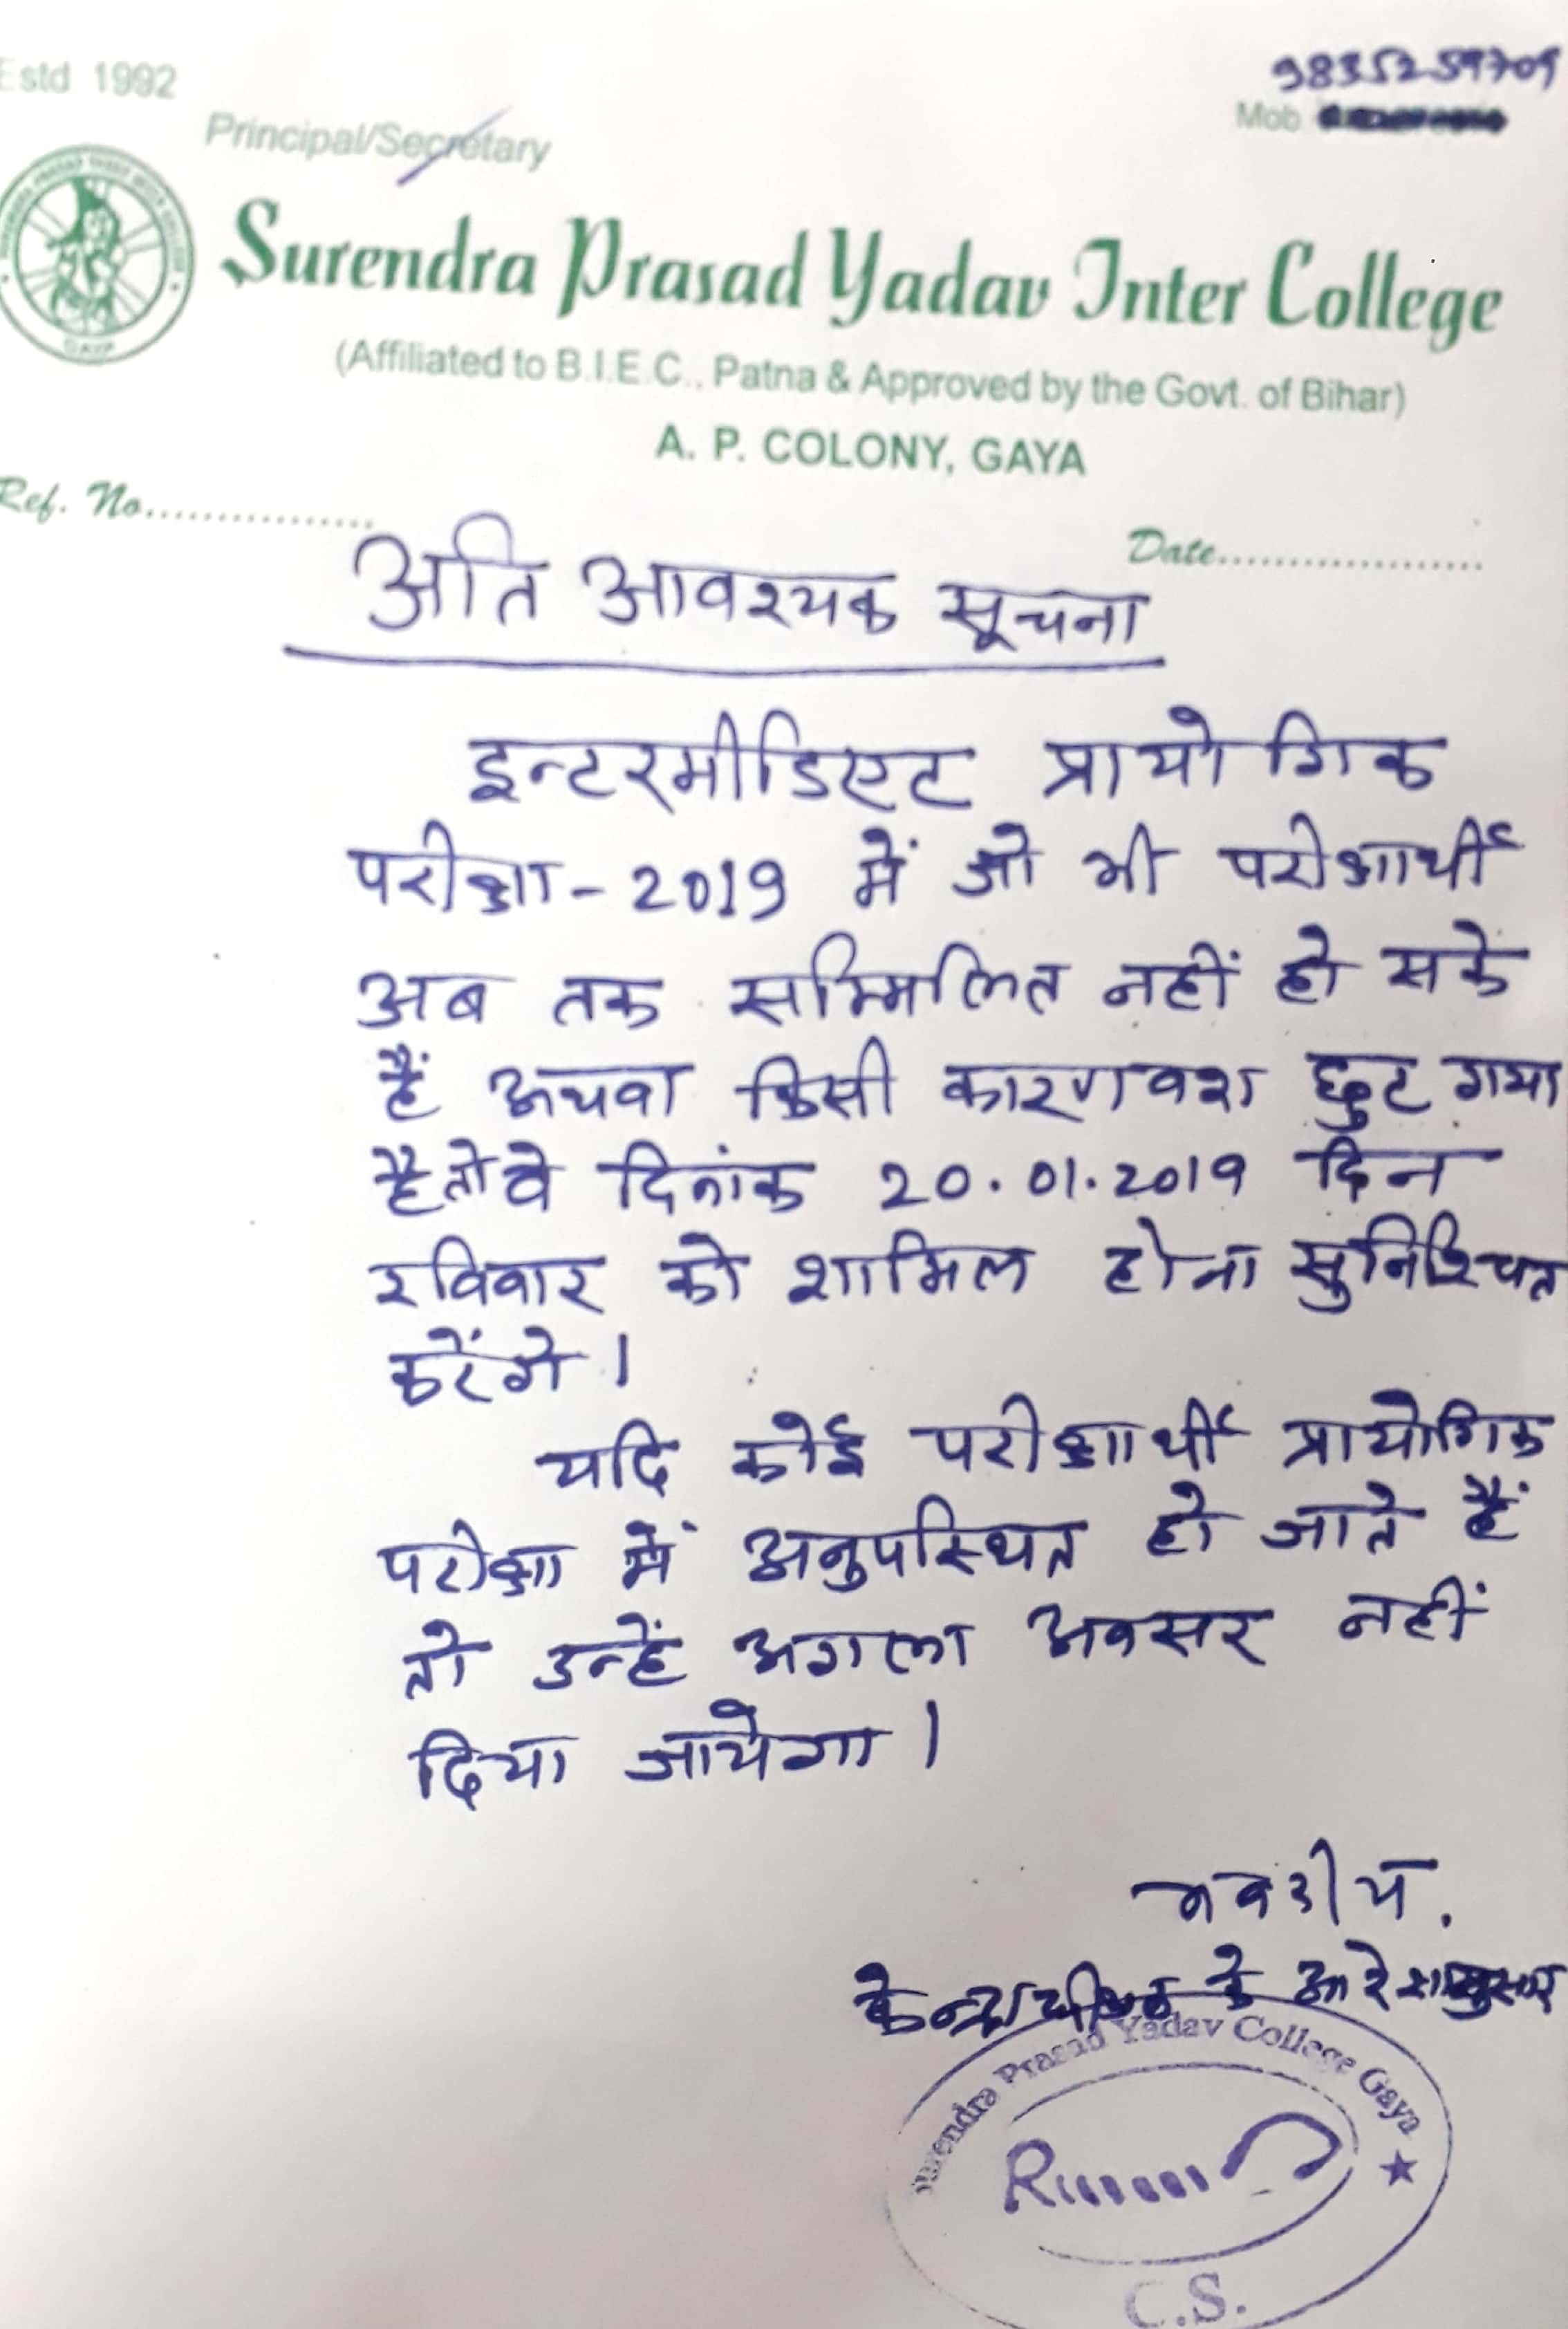 Estd 1992
9835259709
Mob
Principal/Secretary
Surendra Prasad Yadav Inter College
(Affiliated to B.I.E.C., Patna & Approved by the Govt. of Bihar)
A. P. COLONY, GAYA
Ref. No...............
Date...................
अति आवश्यक सूचना
इन्टरमीडिएट प्रायोगिक
परीक्षा-2019 में जो भी परीक्षार्थी
अब तक सम्मिलित नहीं हो सके
हैं अथवा किसी कारणवश छुट गया
है तो वे दिनांक 20.01.2019 दिन
रविवार को शामिल होना सुनिश्चित
करेंगे।
यदि कोई परीक्षार्थी प्रायोगिक
परीक्षा में अनुपस्थित हो जाते हैं
तो उन्हें अगला अवसर नहीं
दिया जायेगा।
भवदीय.
के आदेशानुसार
Prasad Yadav College Gaya
C.S.